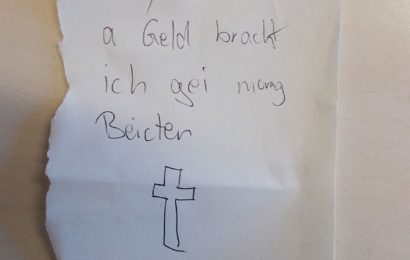 a Geld brackt
ich gei morg
Beicten